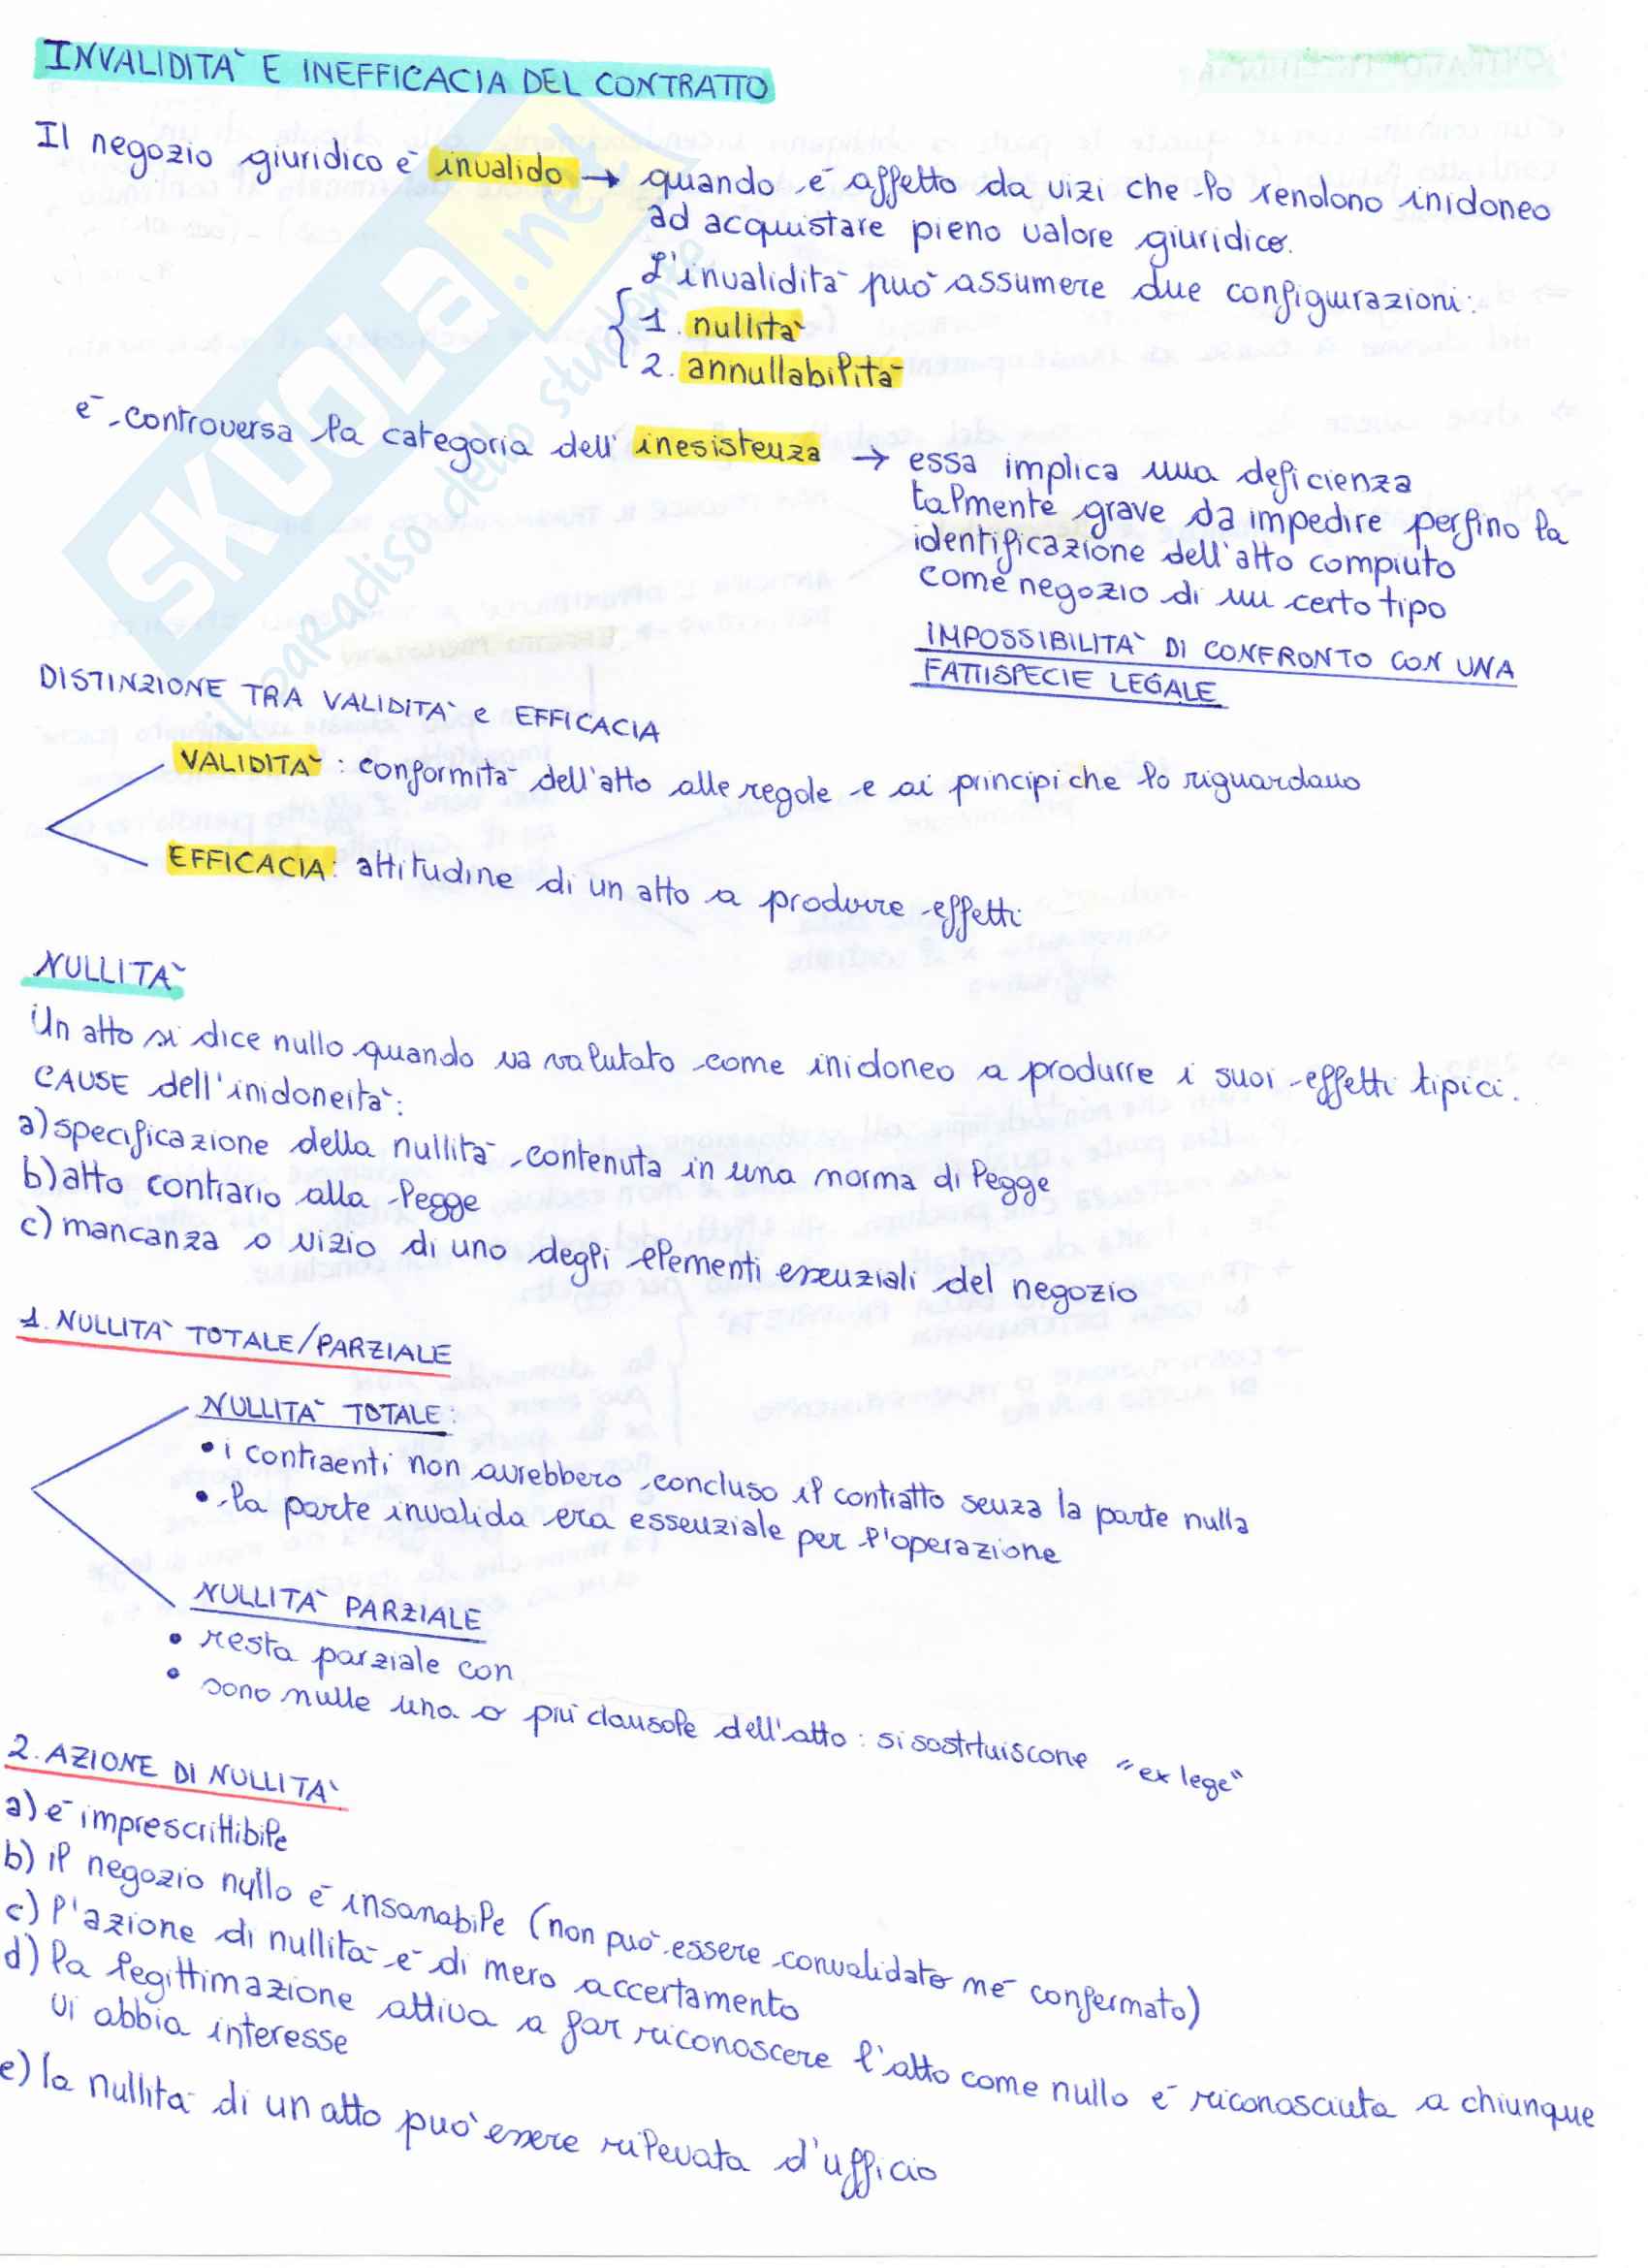 INVALIDITÀ E INEFFICACIA DEL CONTRATTO
Il negozio giuridico è invalido → quando è affetto da vizi che lo rendono inidoneo
ad acquistare pieno valore giuridico.
L'invalidità può assumere due configurazioni:
1. nullità
2. annullabilità
è controversa la categoria dell'inesistenza → essa implica una deficienza
talmente grave da impedire perfino la
identificazione dell'atto compiuto
come negozio di un certo tipo
IMPOSSIBILITÀ DI CONFRONTO CON UNA
FATTISPECIE LEGALE
DISTINZIONE TRA VALIDITÀ e EFFICACIA
VALIDITÀ: conformità dell'atto alle regole e ai principi che lo riguardano
EFFICACIA: attitudine di un atto a produrre effetti
NULLITÀ
Un atto si dice nullo quando va valutato come inidoneo a produrre i suoi effetti tipici.
CAUSE dell'inidoneità:
a) specificazione della nullità contenuta in una norma di legge
b) atto contrario alla legge
c) mancanza o vizio di uno degli elementi essenziali del negozio
1. NULLITÀ TOTALE/PARZIALE
NULLITÀ TOTALE:
• i contraenti non avrebbero concluso il contratto senza la parte nulla
• la parte invalida era essenziale per l'operazione
NULLITÀ PARZIALE
• resta parziale con
• sono nulle una o più clausole dell'atto: si sostituiscone "ex lege"
2. AZIONE DI NULLITÀ
a) è imprescrittibile
b) il negozio nullo è insanabile (non può essere convalidato né confermato)
c) l'azione di nullità è di mero accertamento
d) la legittimazione attiva a far riconoscere l'atto come nullo è riconosciuta a chiunque
vi abbia interesse
e) la nullità di un atto può essere rilevata d'ufficio
SKUOLA.net
il paradiso dello studente